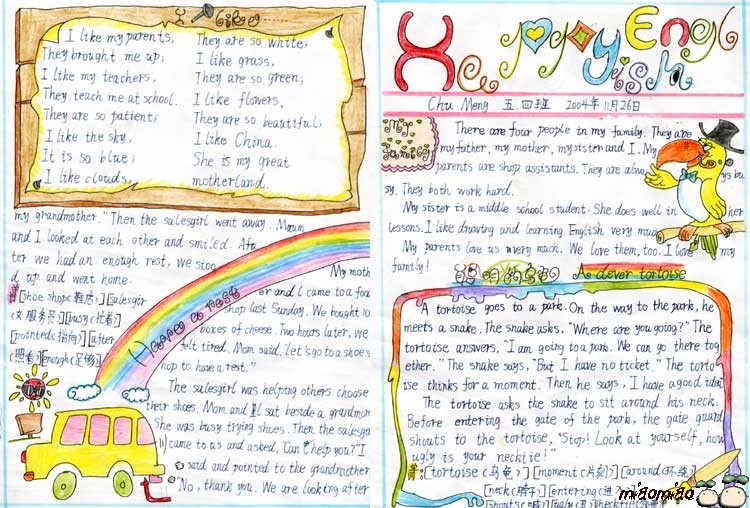 I like
I like my parents,
They brought me up;
I like my teachers,
They teach me at school.
They are so patient;
I like the sky,
It is so blue;
I like clouds,
They are so white;
I like grass,
They are so green;
I like flowers,
They are so beautiful;
I like China.
She is my great
motherland.
Have a rest
My moth
er and I came to a food
shop last Sunday. We bought 10
boxes of cheese. Two hours later, we
felt tired. Mom said, "Let's go to a shoes
hop to have a rest."
The salesgirl was helping others choose
their shoes. Mom and I sat beside a grandmom
She was busy trying shoes. Then the salesgi
came to us and asked, "Can I help you?" I
said and pointed to the grandmother
"No, thank you. We are looking after
my grandmother." Then the salesgirl went away. Mum
and I looked at each other and smiled. Af
ter we had an enough rest, we stoo
d up and went home.
[shoe shop(鞋店)][salesgir
(女服务员)][busy(忙着)]
[pointed(指向)][after
(照看)][enough(足够)]
Happy English
Chu Meng 五四班 2004年11月26日
My family
There are four people in my family. They are
my father, my mother, my sister and I. My
parents are shop assistants. They are alwa ys bu
sy. They both work hard.
My sister is a middle school student. She does well in her
lessons. I like drawing and learning English very much
My parents love us very much. We love them, too. I love my
family!
聪明的乌龟 A clever tortoise
A tortoise goes to a park. On the way to the park, he
meets a snake. The snake asks, "Where are you going?" The
tortoise answers, "I am going to a park. We can go there tog
ether." The snake says, "But I have no ticket." The torto
ise thinks for a moment. Then he says, I have a good idea!
The tortoise asks the snake to sit around his neck.
Before entering the gate of the park, the gate guard
shouts to the tortoise, "Stop! Look at yourself, how
ugly is your necktie!"
[tortoise(乌龟)][moment(片刻)][around(环绕)]
[neck(脖子)][entering(进入)]
miaomiao